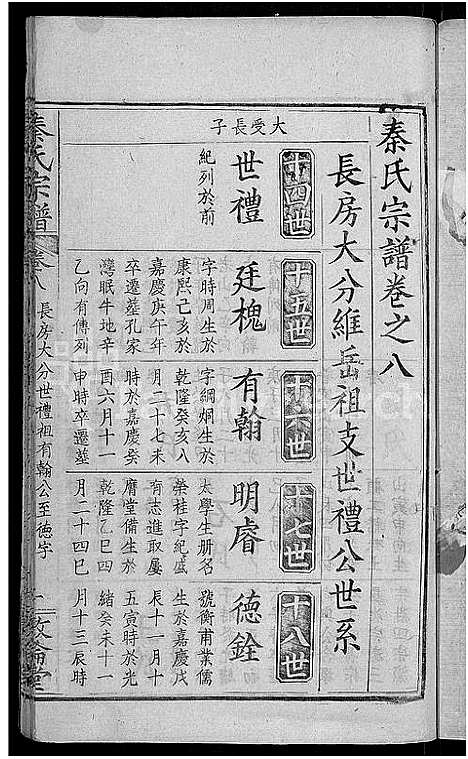 秦氏宗譜卷之八
長房大分維岳祖支世禮公世系
十四世
十五世
十六世
十七世
十八世
大受長子
世禮
紀列於前
廷槐
字時周生於
康熙己亥於
嘉慶庚午年
卒遷墓孔家
灣眠牛地辛
乙向有傳列
有翰
字綱烱生於
乾隆癸亥八
月二十七未
時於嘉慶癸
酉六月十一
申時卒遷墓
明睿
太學生册名
榮桂字紀盛
有志進取屢
膺堂備生於
乾隆乙巳四
月二十四巳
德銓
號衡甫業儒
生於嘉慶戊
辰十一月十
五寅時於光
緒癸未十一
月十三辰時
秦氏宗譜
卷八
長房大分世禮祖有翰公至德字
一
敦倫堂